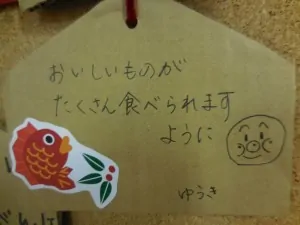 おいしいものが
たくさん食べられます
ように
ゆうき